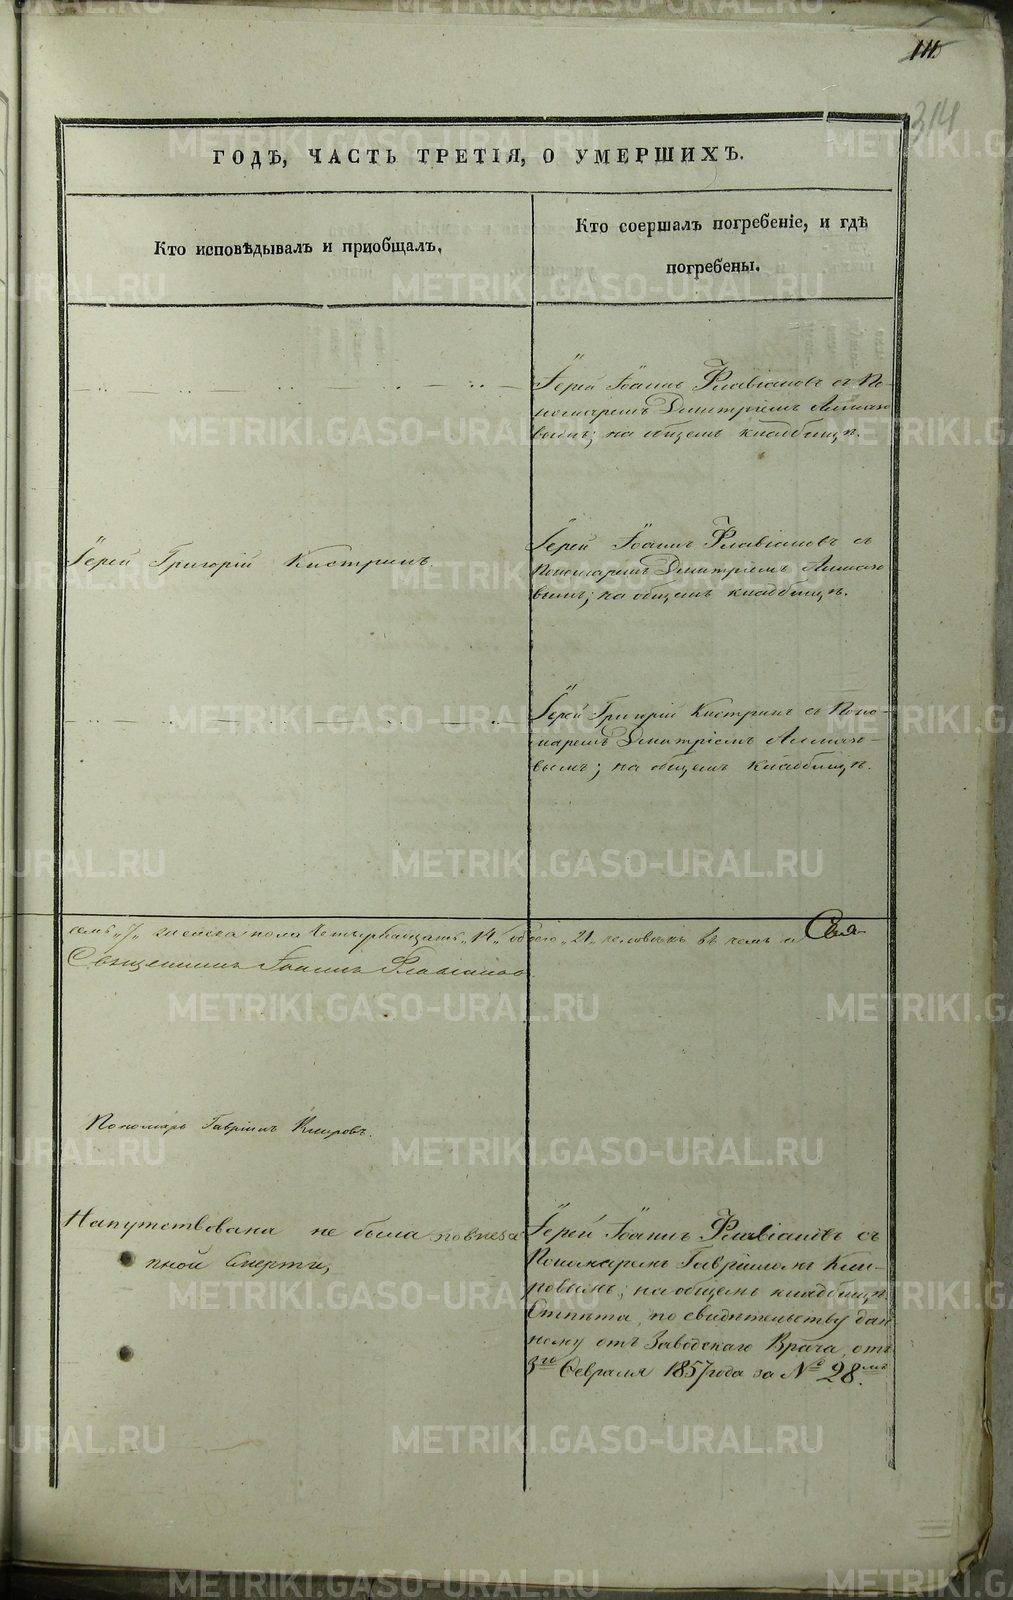 111.
314
ГОДЪ, ЧАСТЬ ТРЕТІЯ, О УМЕРШИХЪ.
Кто исповѣдывалъ и приобщалъ.
Кто соершалъ погребеніе, и гдѣ
погребены.
Іерей Іоаннъ Флавіановъ съ По-
номаремъ Дмитріемъ Алмазо
вымъ; на общемъ кладбищѣ.
Іерей Григорій Кистринъ.
Іерей Іоаннъ Флавіановъ съ
Пономаремъ Дмитріемъ Алмазо
вымъ; на общемъ кладбищѣ.
Іерей Григорій Кистринъ съ Поно-
маремъ Дмитріемъ Алмазо-
вымъ; на общемъ кладбищѣ.
семь „7„ женска пола четырнадцать „14„ обоего „21„ человѣкъ въ чемъ и Свя-
Священникъ Іоаннъ Флавіановъ.
Пономарь Гавріилъ Кыровъ.
Напутствована не была по внеза
пной смерти,
Іерей Іоаннъ Флавіановъ съ
Пономаремъ Гавріиломъ Кы-
ровымъ; на общемъ кладбищѣ.
Отпѣта, по свидѣтельству дан
ному отъ Заводскаго Врача, отъ
3го Февраля 1857 года за № 28.мъ
METRIKI.GASO-URAL.RU